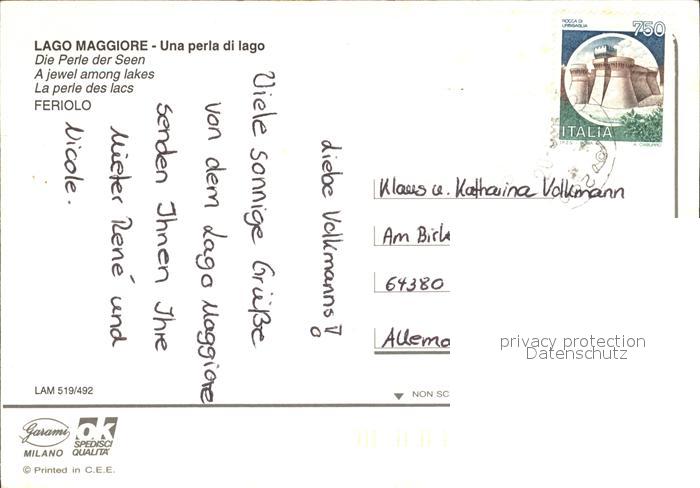 LAGO MAGGIORE - Una perla di lago
Die Perle der Seen
A jewel among lakes
La perle des lacs
FERIOLO
Liebe Volkmanns!
Viele sonnige Grüße
von dem Lago Maggiore
senden Ihnen Ihre
Mieter René und
Nicole.
ROCCA DI
URBISAGLIA
750
ITALIA
Klaus u. Katharina Volkmann
Am Birk
64380
Allema
privacy protection
Datenschutz
NON SC
LAM 519/492
Garami
MILANO
ok
SPEDISCI
QUALITA'
© Printed in C.E.E.